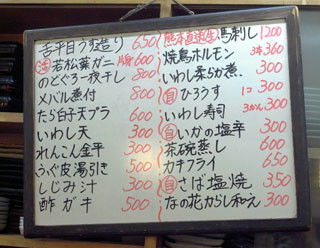 舌平目うす造り 650
活 若松葉ガニ 片身 600
のどぐろ一夜干し 800
メバル煮付 800
たら白子天プラ 600
いわし天 300
れんこん金平 300
ふぐ皮湯引き 500
しじみ汁 300
酢ガキ 500
熊本直送生馬刺し 1200
焼鳥ホルモン 3本 360
いわし柔らか煮 300
自 ひろうす 1コ 300
いわし寿司 3かん 300
自 いかの塩辛 300
茶碗蒸し 600
カキフライ 650
自 さば塩焼 350
なの花からし和え 300